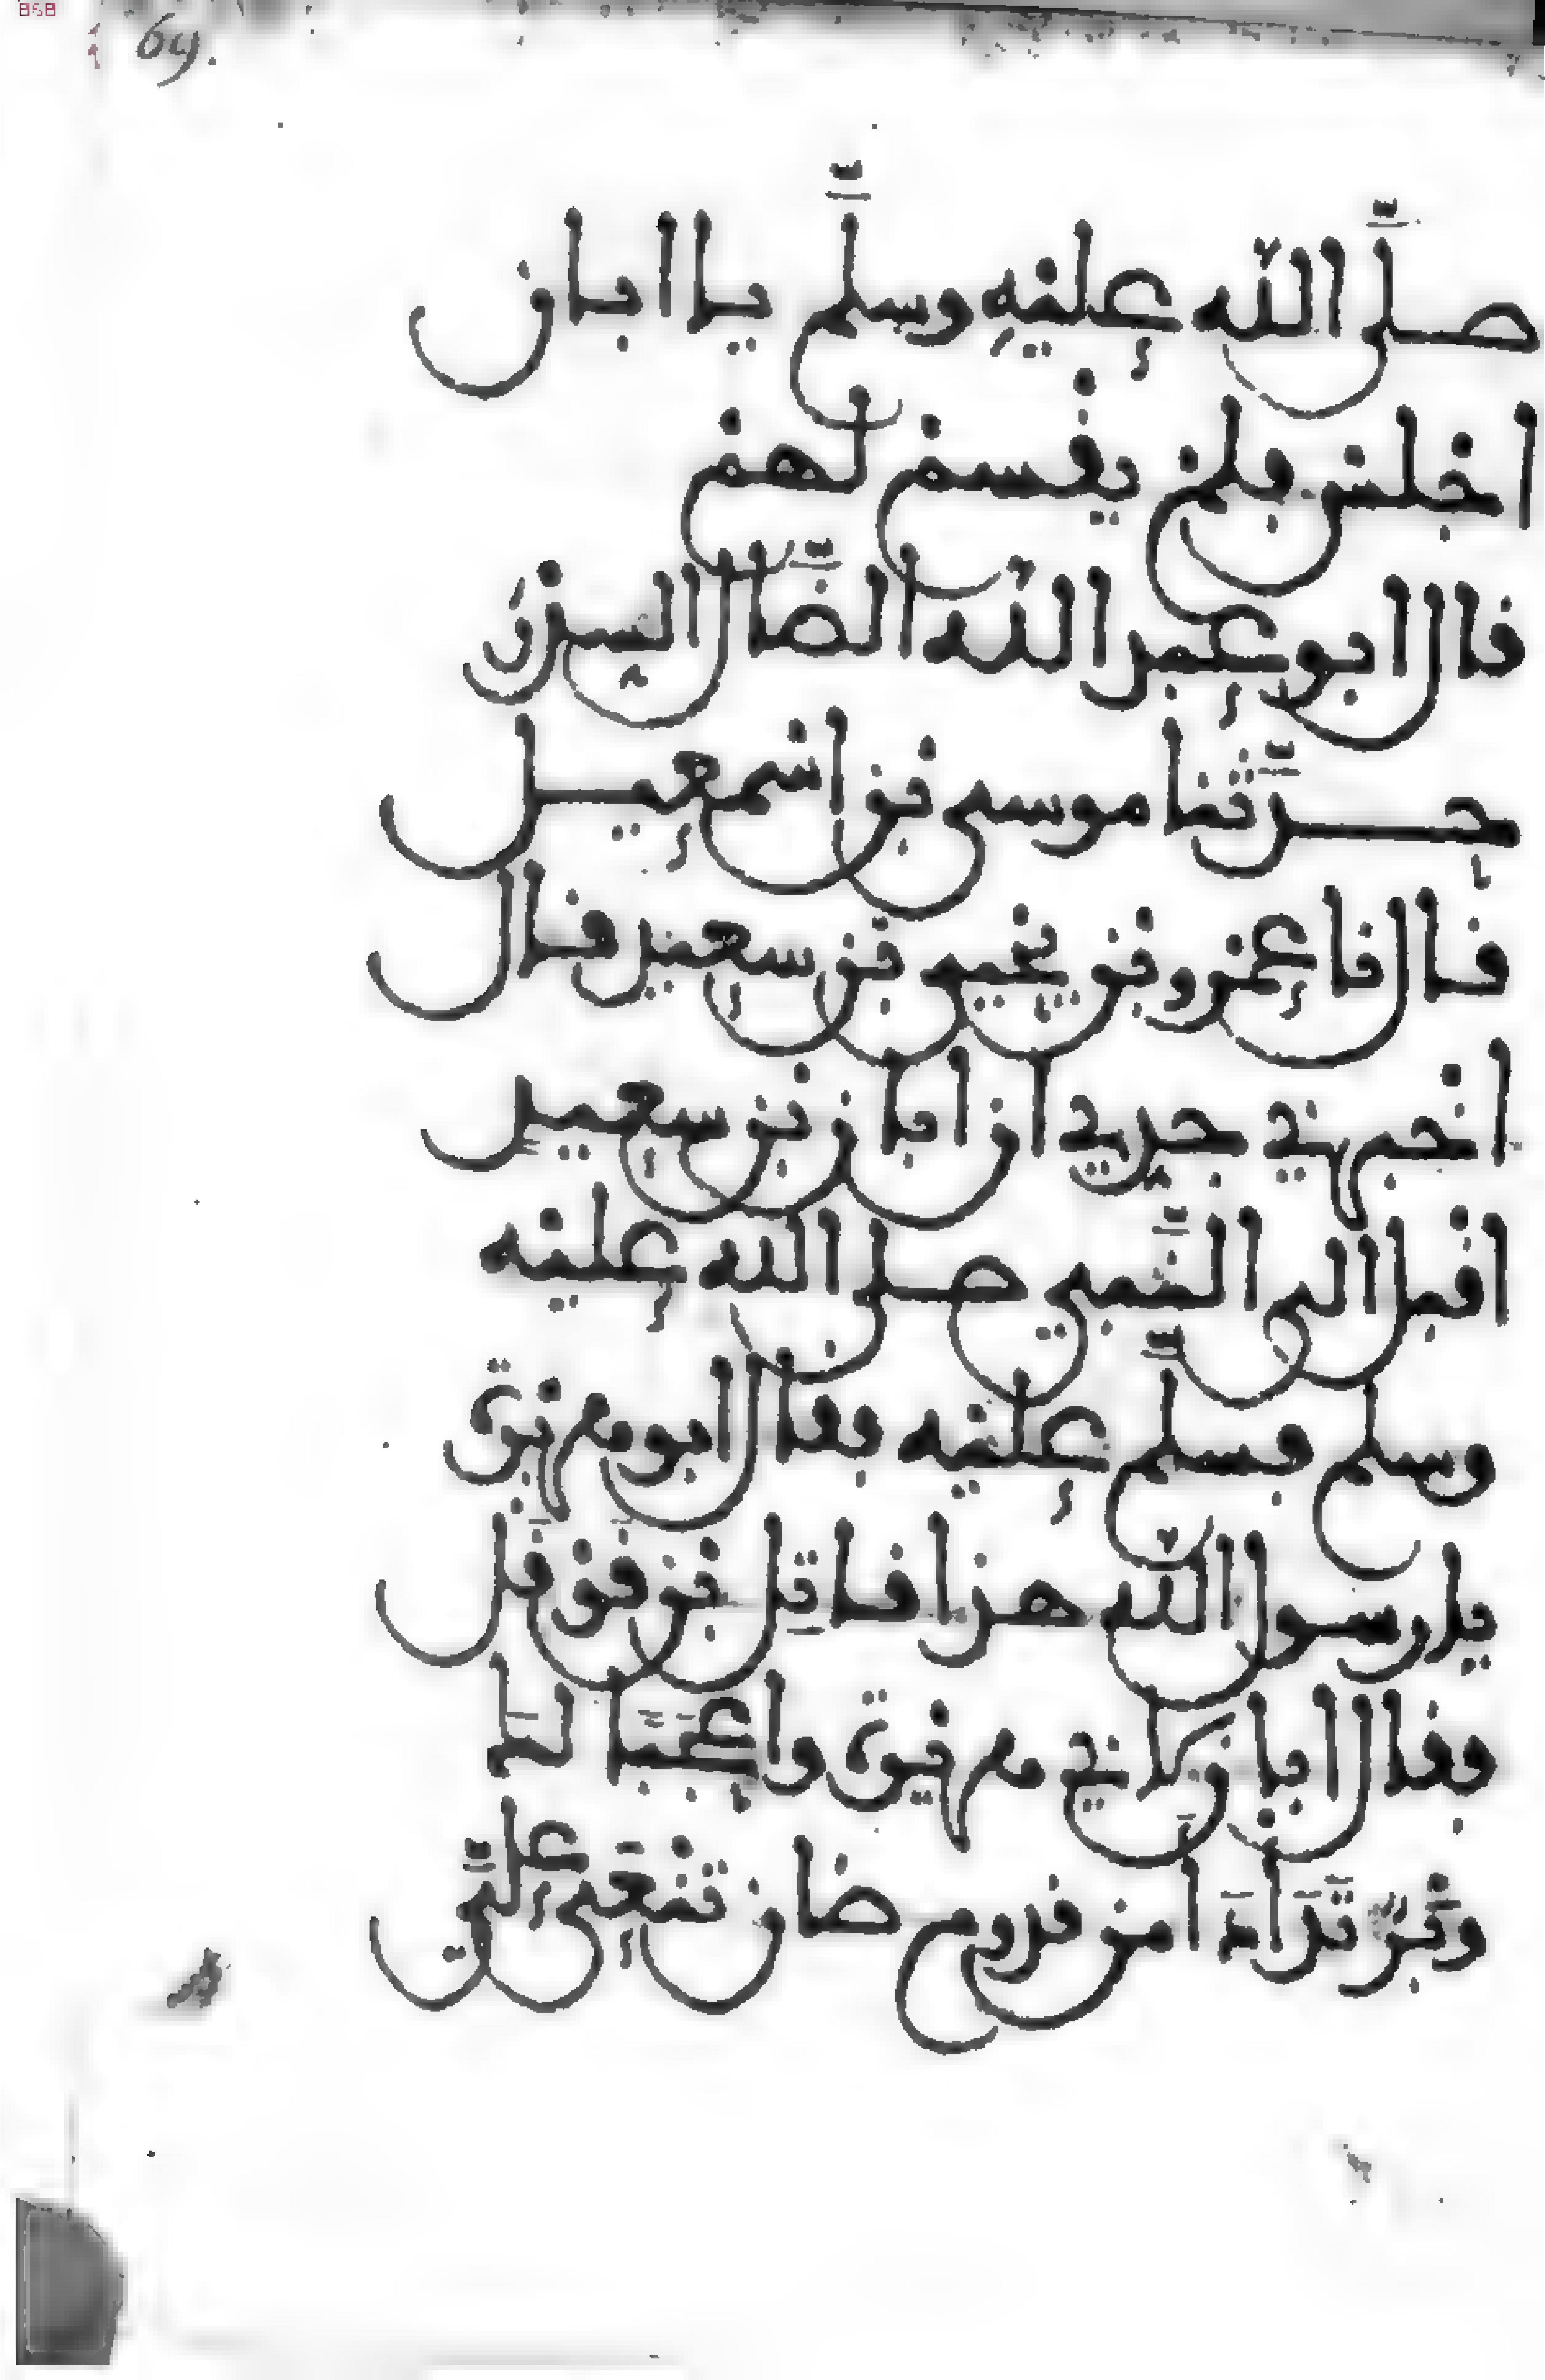 64.
صلَّى الله عليه وسلَّم يا ابان
اجلس فلم يقسم لهم
قال ابو عبد الله الضَّال السدر
حدَّثنا موسى بن اسمعيل
قال نا عمرو بن يحيى بن سعيد قال
اخبرني جدي ان ابان بن سعيد
اقبل الى النَّبي صلى الله عليه
وسلم فسلَّم عليه فقال ابو هريرة
يا رسول الله هذا قاتل بن قوقل
فقال ابان لابي هريرة واعجبا لك
وَبْرٌ تَدَأدَأ من قدوم ضان تنعى عليَّ